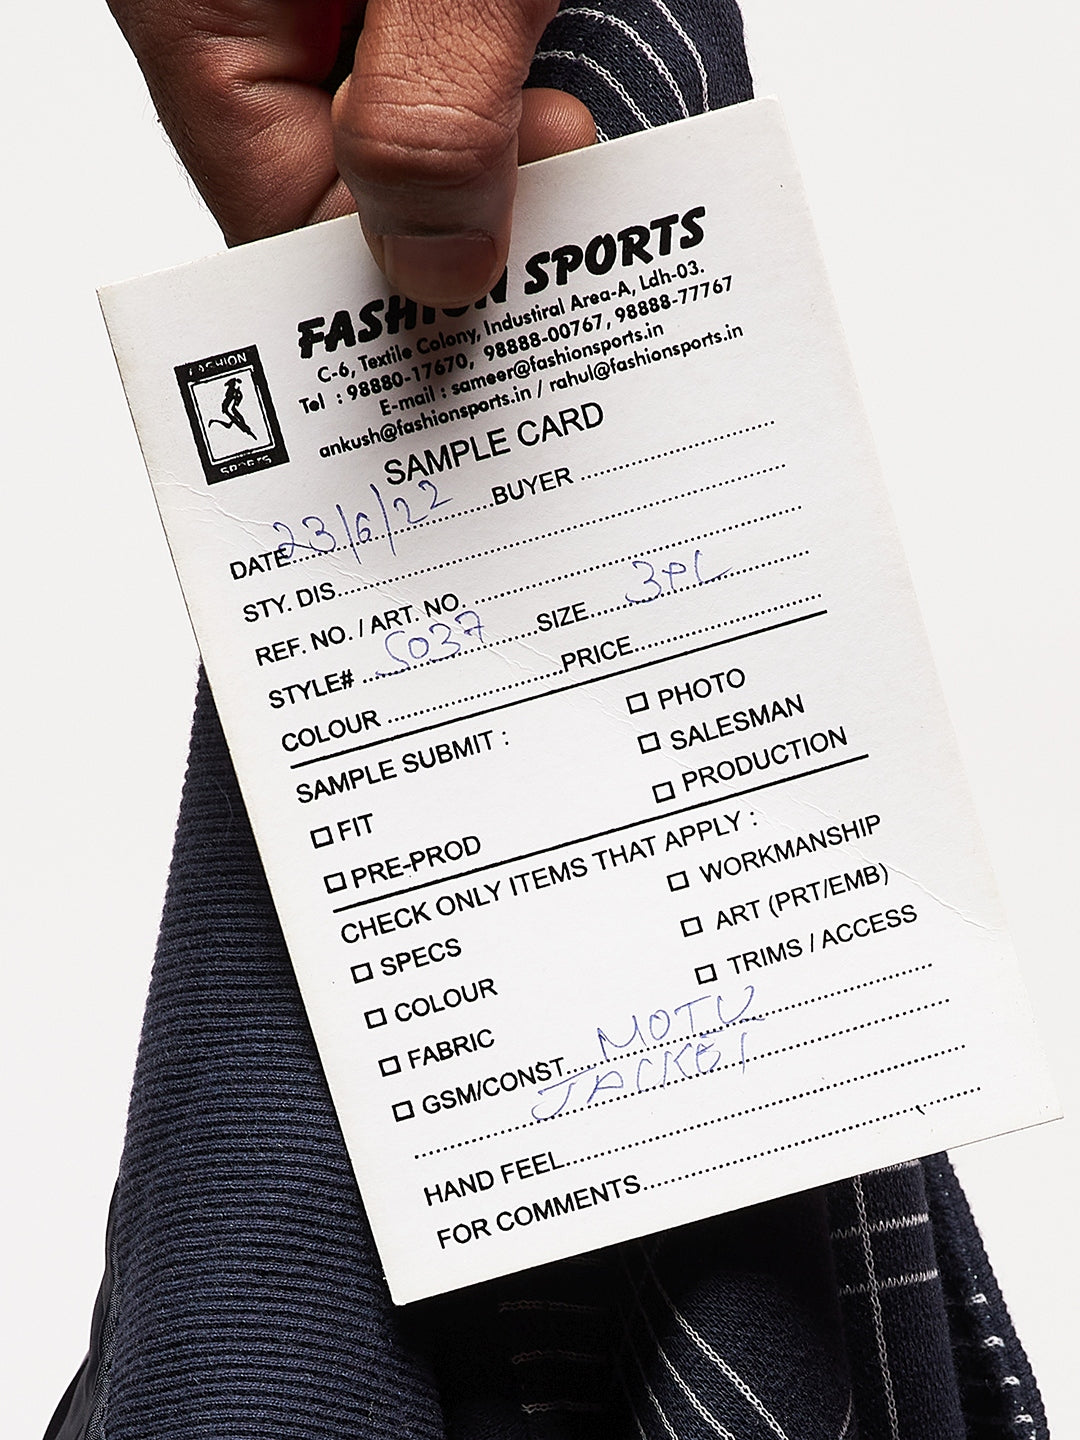 FASHION SPORTS
C-6, Textile Colony, Industiral Area-A, Ldh-03.
Tel : 98880-17670, 98888-00767, 98888-77767
E-mail : sameer@fashionsports.in
ankush@fashionsports.in / rahul@fashionsports.in
FASHION
SPORTS
SAMPLE CARD
DATE 23/6/22 BUYER
STY. DIS.
REF. NO. / ART. NO.
STYLE# 5037 SIZE 3PL
COLOUR PRICE
SAMPLE SUBMIT : PHOTO
SALESMAN
FIT PRODUCTION
PRE-PROD
CHECK ONLY ITEMS THAT APPLY :
SPECS WORKMANSHIP
COLOUR ART (PRT/EMB)
FABRIC TRIMS / ACCESS
GSM/CONST. MOTU
JACKET
HAND FEEL
FOR COMMENTS